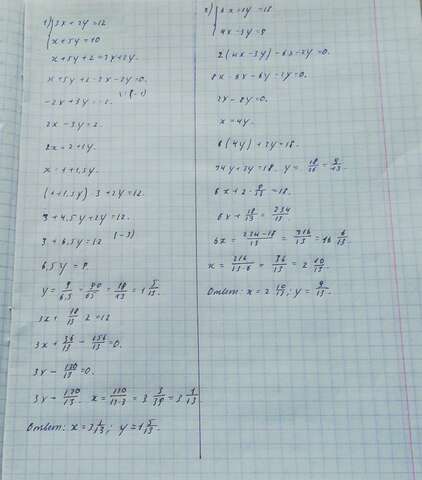 1) { 3x + 2y = 12
x + 5y = 10
x + 5y + 2 = 3x + 2y.
x + 5y + 2 - 3x - 2y = 0.
-2x + 3y = -2. | · (-1)
2x - 3y = 2.
2x = 2 + 3y.
x = 1 + 1,5y.
(1 + 1,5y) · 3 + 2y = 12.
3 + 4,5y + 2y = 12.
3 + 6,5y = 12 (-3)
6,5y = 9
y = 9/6,5 = 90/65 = 18/13 = 1 5/13.
3x + 18/13 · 2 = 12
3x + 36/13 - 156/13 = 0.
3x - 120/13 = 0.
3x = 120/13. x = 120/13·3 = 3 3/39 = 3 1/13.
Ответ: x = 3 1/13; y = 1 5/13.
2) { 6x + 2y = 18
4x - 3y = 9
2(4x - 3y) - 6x - 2y = 0.
8x - 6x - 6y - 2y = 0.
2x - 8y = 0.
x = 4y.
6(4y) + 2y = 18.
24y + 2y = 18. y = 18/26 = 9/13.
6x + 2 · 9/13 = 18.
6x + 18/13 = 234/13
6x = 234-18/13 = 216/13 = 16 6/13.
x = 216/13·6 = 36/13 = 2 10/13
Ответ: x = 2 10/13; y = 9/13.